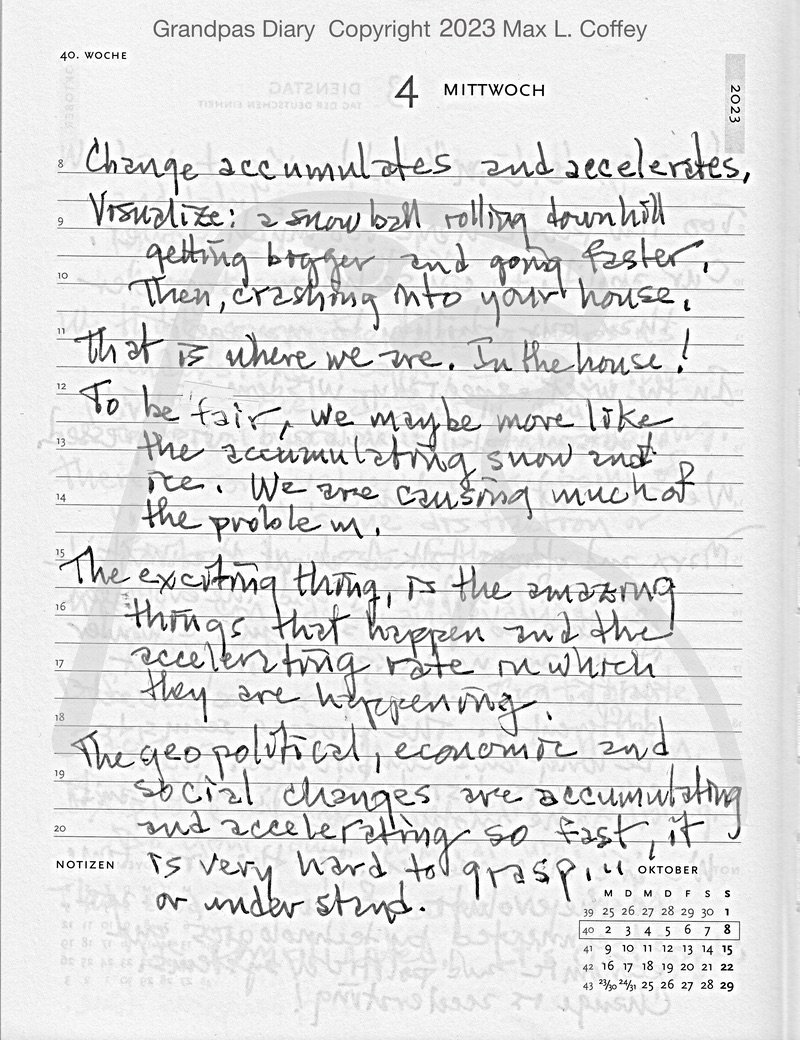 Grandpas Diary Copyright 2023 Max L. Coffey
40. WOCHE
4 MITTWOCH
2023
8 Change accumulates and accelerates,
9 Visualize: a snow ball rolling downhill
getting bigger and going faster.
10 Then, crashing into your house.
11 That is where we are. In the house!
12 To be fair, we maybe more like
13 the accumulating snow and
ice. We are causing much of
14 the problem.
15 The exciting thing, is the amazing
16 things that happen and the
17 accelerating rate in which
they are happening.
18 The geopolitical, economic and
19 social changes are accumulating
20 and accelerating so fast, it
NOTIZEN is very hard to grasp...
or understand.
OKTOBER
M D M D F S S
39 25 26 27 28 29 30 1
40 2 3 4 5 6 7 8
41 9 10 11 12 13 14 15
42 16 17 18 19 20 21 22
43 23/30 24/31 25 26 27 28 29
DIENSTAG
TAG DER DEUTSCHEN EINHEIT
3